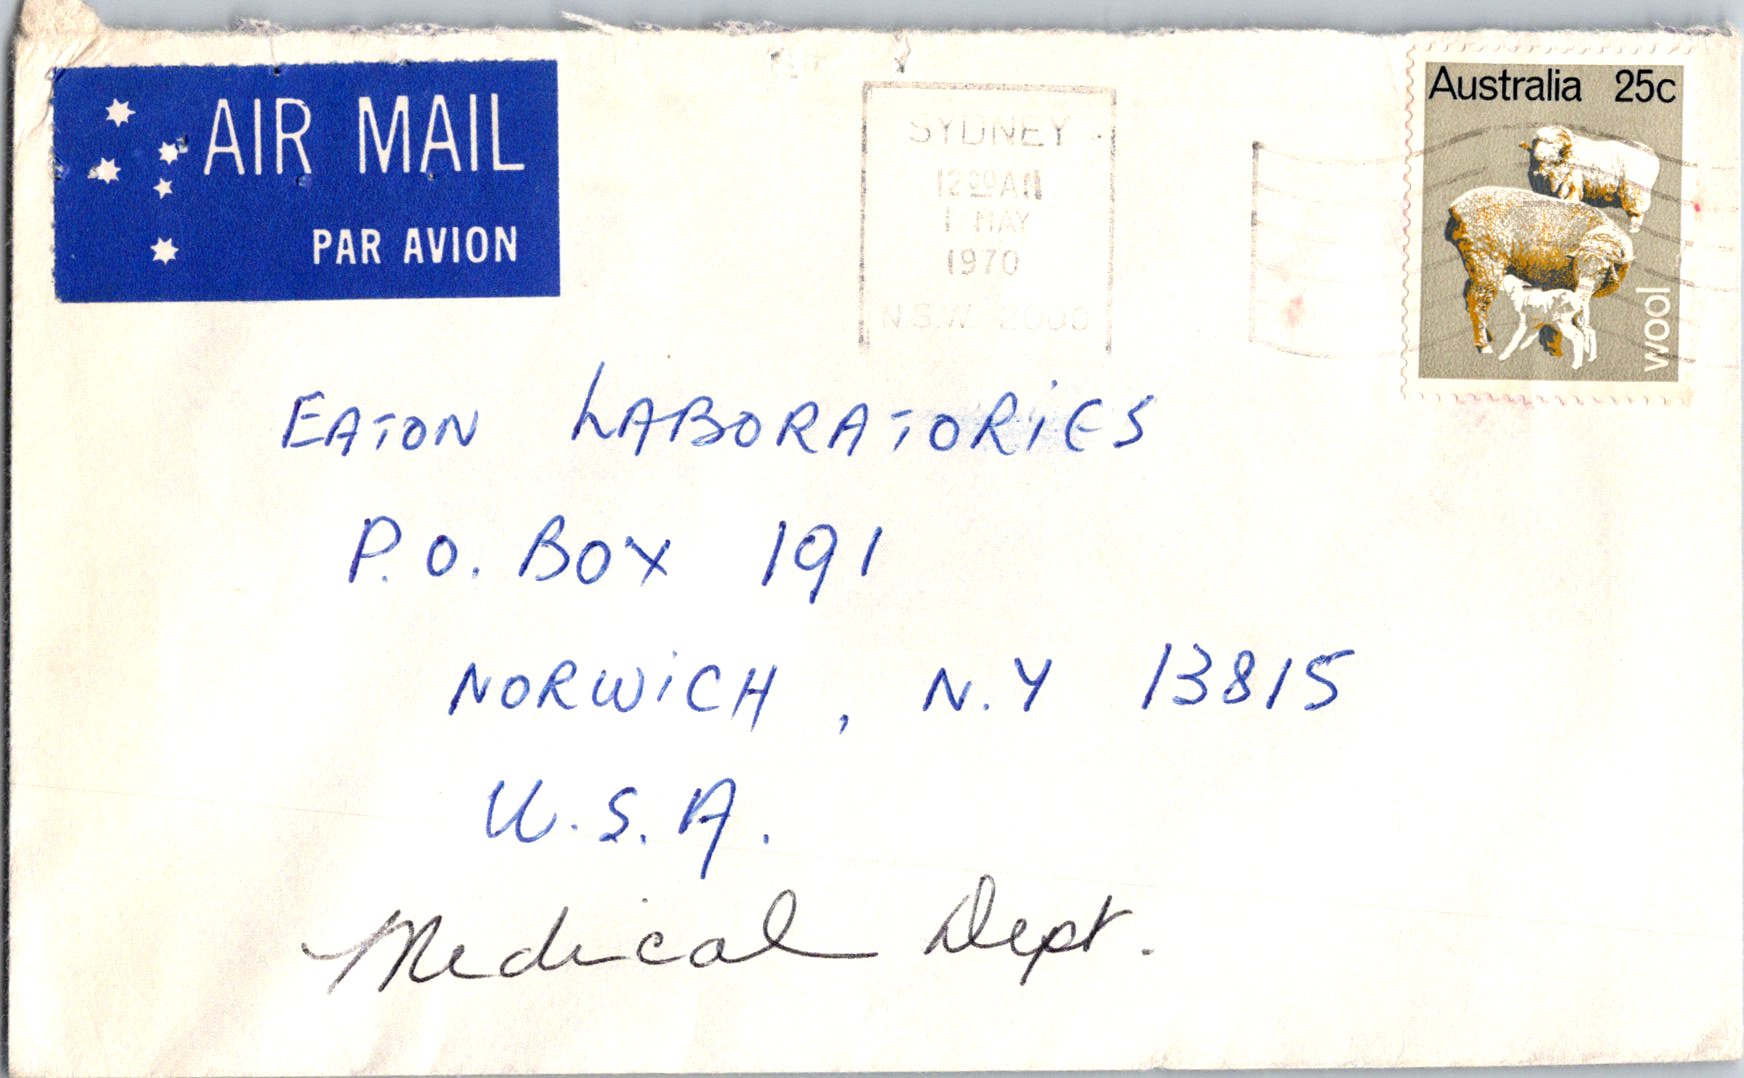 AIR MAIL
PAR AVION
SYDNEY
12 30 AM
1 MAY
1970
N.S.W. 2000
Australia 25c
wool
EATON LABORATORIES
P.O. BOX 191
NORWICH, N.Y 13815
U.S.A.
Medical Dept.